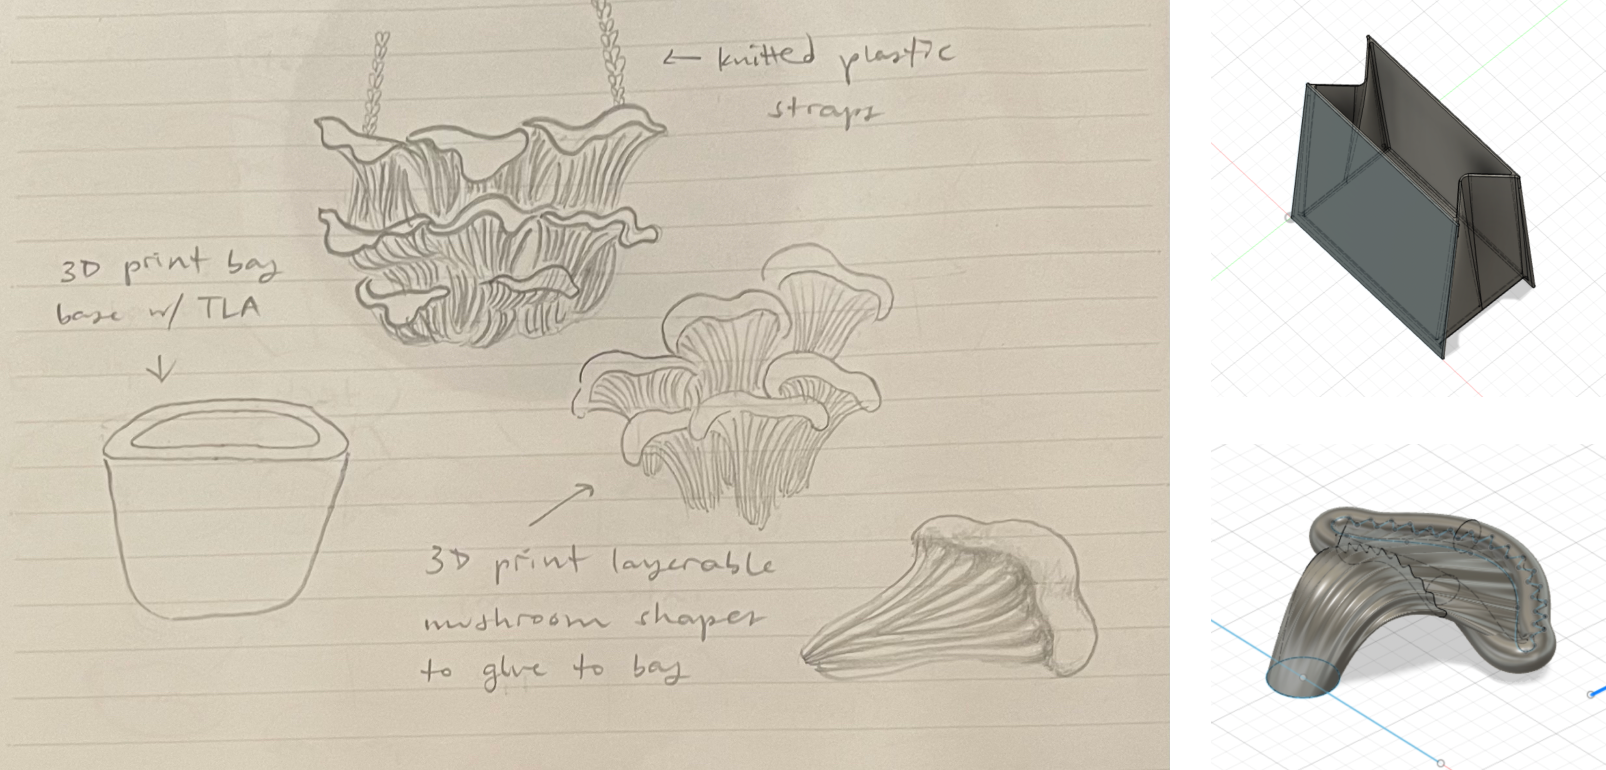 ← knitted plastic
straps
3D print bag
base w/ TLA
3D print layerable
mushroom shapes
to glue to bag